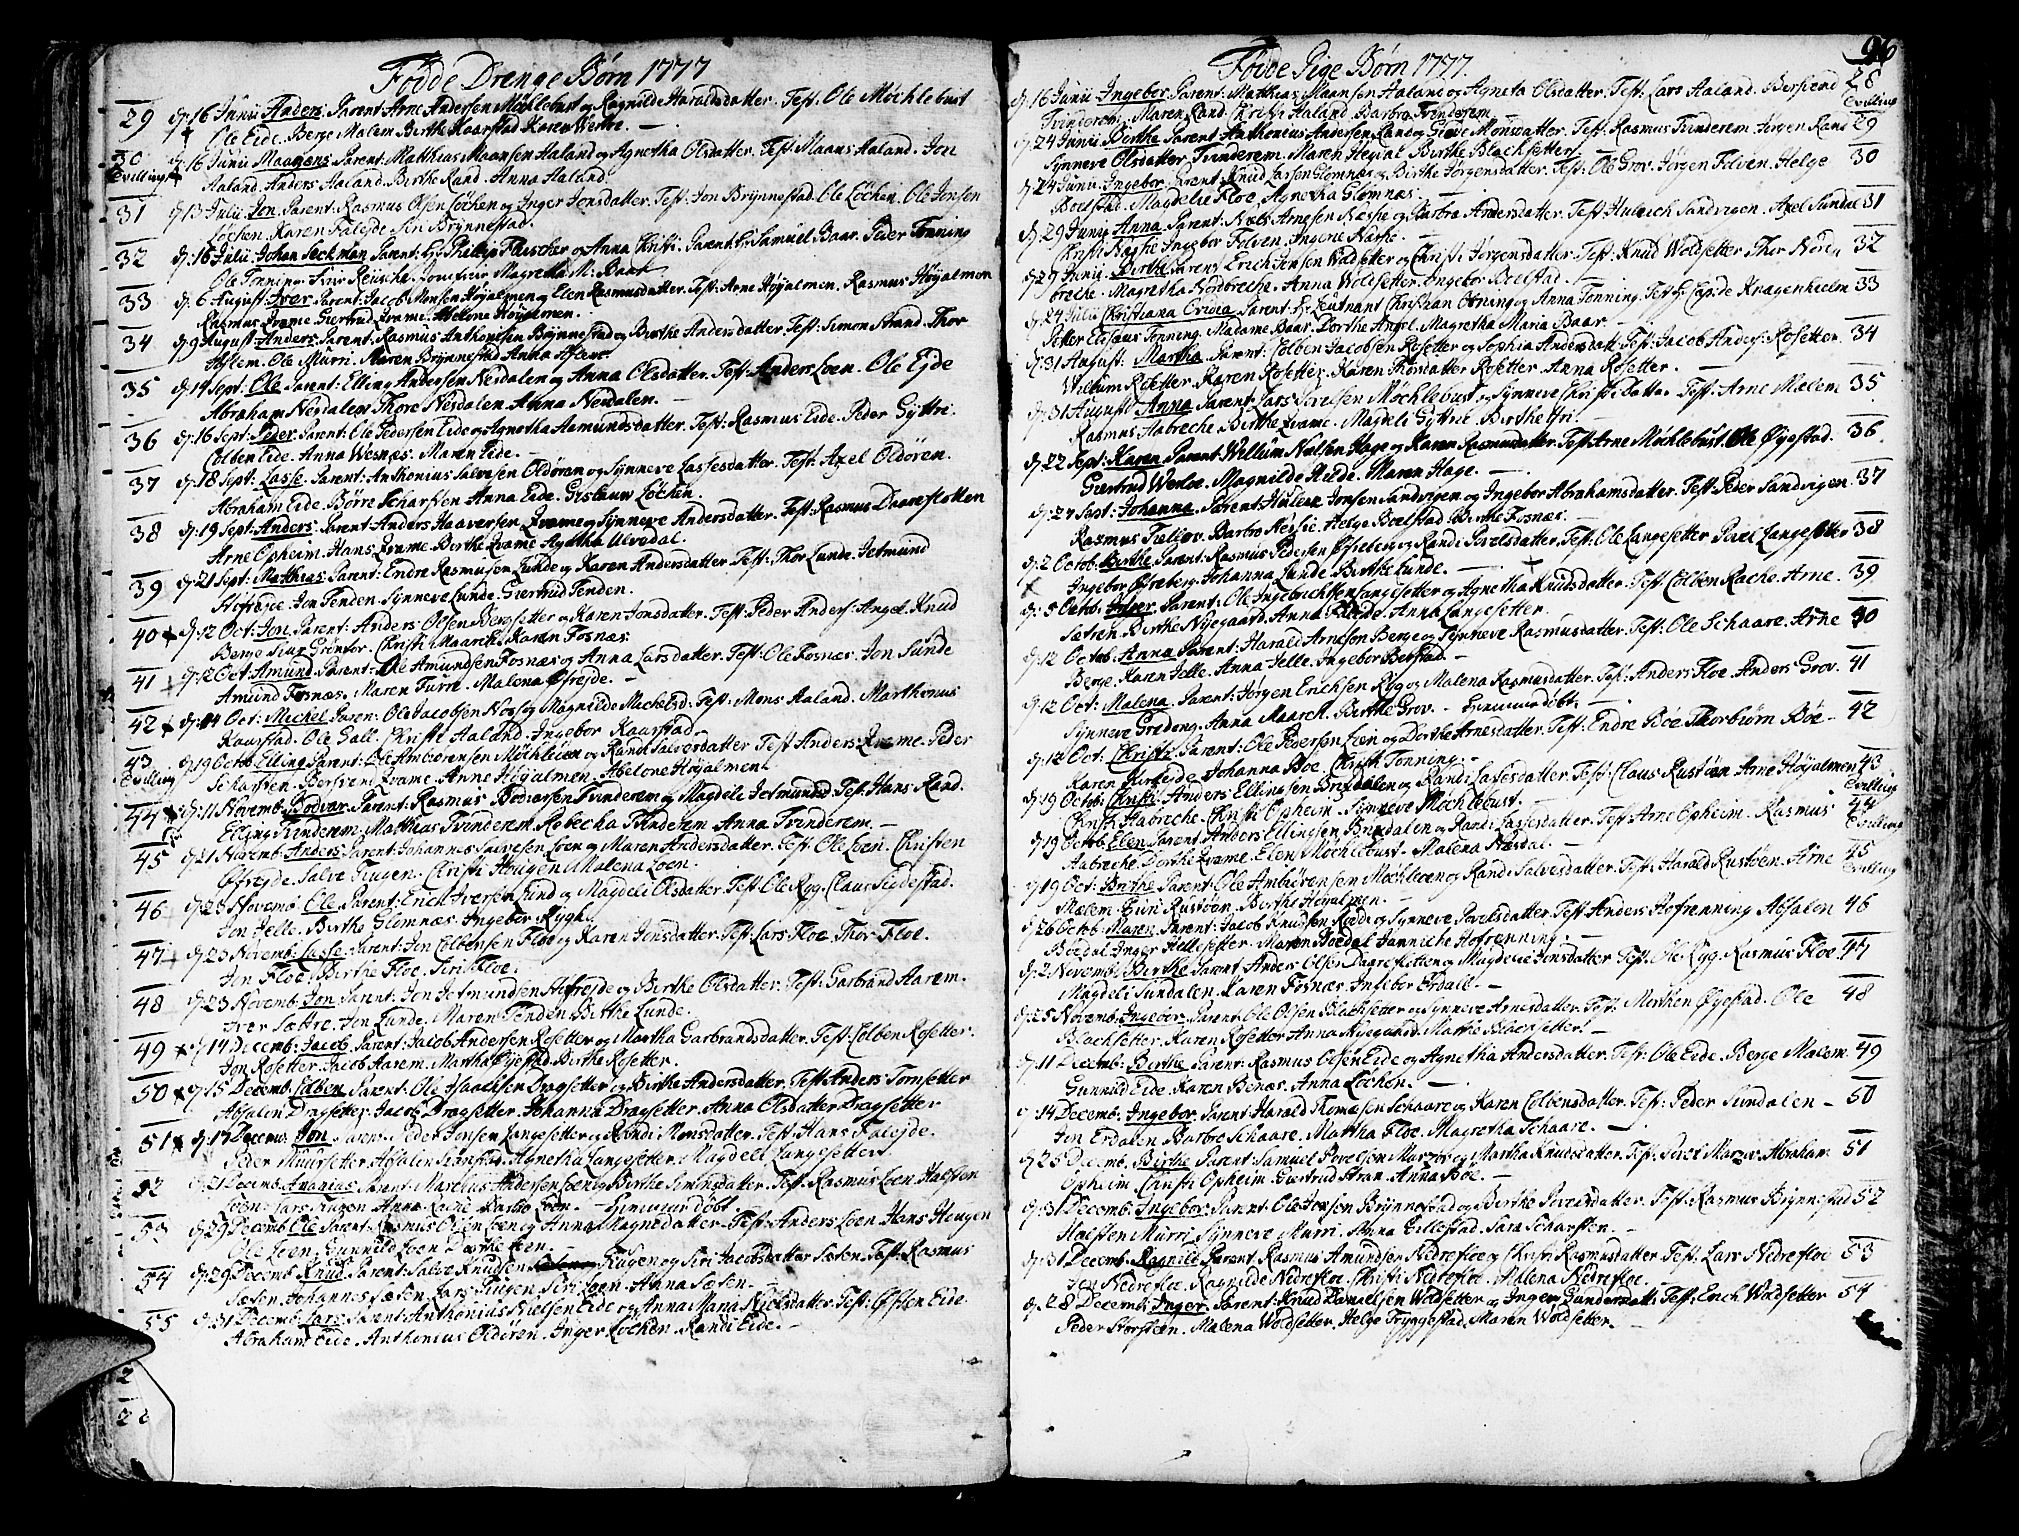 Fødde Drenge Børn 1777
29 d: 16 Junii Anders. Parent: Arne Andersen Möchlebust og Ragnilde Haraldsdatter. Test: Ole Möchlebust
Ole Eide. Berge Malem Birthe Kaarstad Karen Werloe.
30 d: 16 Junii Maanens. Parent: Matthias Maansen Aaland og Agnetha Olsdatter. Test: Maans Aaland. Jon
Tvilling Aaland. Anders Aaland. Birthe Rand. Anna Aaland
31 d: 13 Julii Jon. Parent: Rasmus Olsen Löchen og Inger Jonsdatter. Test: Jon Brÿnnestad. Ole Löchen. Ole Jonsen
Löchen. Karen Faleide Siri Brÿnnestad.
32 d: 16 Julii Johan Seckman Parent: Hr Philip Fleischer og Anna Christi. Parent Hr Samuel Baar. Peder Tonning
Ole Tonning. Magretha M: Baar
33 d: 6 August: Iver Parent: Jacob Monsen Höyalmen og Elen Rasmusdatter. Test: Arne Höyalmen. Rasmus Höyalmen
Rasmus Qvame Giertrud Qvame. Abelone Höyalmen.
34 d: 9 August: Anders. Parent: Rasmus Anthonisen Brÿnnestad og Birthe Andersdatter. Test: Simon Strand. Thor
Aaflem. Ole Murri. Maren Brÿnnestad Anna Aaflem.
35 d: 14 Sept: Ole Parent: Elling Andersen Nesdalen og Anna Olsdatter. Test: Anders Loen. Ole Eide
Abraham Nesdalen Thore Nesdalen. Anna Nesdalen.
36 d: 16 Sept: Peder Parent: Ole Pedersen Eide og Agnetha Aamundsdatter. Test: Rasmus Eide. Peder Gÿttri.
Colben Eide. Anna Wesnæs. Maren Eide.
37 d: 18 Sept: Lasse. Parent: Anthonius Salvesen Oldören og Sÿnneve Lassesdatter. Test: Axel Oldören.
Abraham Eide Börre Scharsten Anna Eide. Löchen.
38 d: 19 Sept: Anders. Parent: Anders Haaversen Qvame og Sÿnneve Andersdatter. Test: Rasmus Daarefletten
Arne Opheim. Hans Qvame Birthe Qvame Agatha Ulvedal.
39 d: 21 Sept: Matthias Parent: Endre Rasmusen Lunde og Karen Andersdatter. Test: Thor Lunde. Jetmund
Hefrejde Jon Tenden. Sÿnneve Lunde. Giertrud Tenden.
40 d: 12 Oct: Jon. Parent: Anders Olsen Bergsetter og Karen Jonsdatter. Test: Peder Anders: Angel. Knud
Berge Siur Grönfor. Christi Maarck Karen Fosnæs.
41 d: 12 Oct: Amund. Parent: Ole Amundsen Fosnæs og Anna Larsdatter. Test: Ole Fosnæs. Jon Sunde
Amund Fosnæs. Maren Furre. Malena Öfrejde.
42 d: 14 Oct: Michel Parent: Ole Jacobsen Nos og Magnilde Michelsd: Test: Mons Aaland. Marthonus
Kaarstad. Ole Sall. Christi Aaland. Ingebor Kaarstad.
43 d: 19 Octob: Elling Parent: Ole Ambiörensen Möchleöen og Randi Salvesdatter Test: Anders Qvame. Peder
Tvilling Scharsten. Bersven Qvame. Anne Höyalmen. Abelone Höyalmen.
44 d: 11 Novemb: Bodvar. Parent: Rasmus Bodvarsen Tvinderem og Magdeli Jetmundsd Test: Hans Rand.
Elling Tvinderem Matthias Tvinderem Rebecha Tvinderem Anna Tvinderem.
45 d: 21 Novemb: Anders Parent: Johannes Salvesen Loen og Maren Andersdatter. Test: Ole Loen. Christen
Öfrejde Salve Tiugen. Christi Hougen Malena Loen.
46 d: 23 Novemb: Ole. Parent: Erich Iversen Lund og Magdeli Olsdatter. Test: Ole Ryg. Claus Sigdestad.
Jon Jelle. Birthe Glomnæs. Ingebor Rygh.
47 d: 23 Novemb: Lasse. Parent: Jon Colbensen Floe og Karen Jonsdatter. Test: Lars Floe Thor Floe.
Jon Floe. Birthe Floe. Siri Floe.
48 d: 23 Novemb: Jon. Parent: Jon Jetmundsen Hefrejde og Birthe Olsdatter. Test: Garbrand Aarem.
Iver Sættre. Jon Lunde. Maren Tenden Birthe Lunde.
49 d: 14 Decemb: Jacob. Parent: Jacob Andersen Rosetter og Martha Garbrandsdatter. Test: Colben Rosetter.
Jon Rosetter. Jacob Aarem. Martha Öyestad. Birthe Rosetter.
50 d: 15 Decemb: Colben Parent: Ole Absalonsen Dragsetter og Birthe Andersdatter. Test: Anders Tomsetter
Absalon Dragsetter. Jacob Dragsetter. Johanna Dragsetter. Anna Olsdatter Dragsetter
51 d: 17 Decemb: Jon Parent: Peder Jonsen Langesetter og Randi Monsdatter. Test: Hans Faleide.
Peder Muursetter. Absalon. Agnetha Langesetter. Magdeli Langesetter.
52 d: 21 Decemb: Ananias Parent: Marcus Andersen Loen og Birthe Simonsdatter. Test: Rasmus Loen Halsten
Loen. Lars Tiugen Anna Loen Barbo Loen. Hiemmedöbt.
53 d: 29 Decemb: Ole Parent: Rasmus Olsen Loen og Anna Magnesdatter. Test: Anders Loen Hans Hougen
Ole Loen. Gunnild Loen Dorthe Loen.
54 d: 29 Decemb: Knud. Parent: Salve Knudsen Tiugen og Siri Jacobsdatter Sæten. Test: Rasmus
Sæten. Johannes Sæten. Lars Tiugen. Siri Loen. Anna Sæten.
55 d: 31 Decemb: Lars. Parent: Anthonius Nielsen Eide og Anna Maria Nielsdatter. Test: Östen Eide
Abraham Eide. Anthonius Oldören. Inger Löchen. Randi Eide.
2
2
96
Fødde Pige Børn 1777.
d: 16 Junii Ingebor. Parent: Matthias Maansen Aaland og Agneta Olsdatter. Test: Lars Aaland. Bersvend 28
Tvinderem. Maren Rand. Christi Aaland. Barbro Tvinderem Tvilling
d: 24 Junii Berthe Parent Anthonius Andersen Rand og Giöve Monsdatter. Test: Rasmus Tvinderem. Jörgen Rand 29
Sÿnneve Olsdatter Tvinderem. Maren Hegdal Birthe Blachsetter.
d: 24 Junii Ingebor. Parent: Knud Larsen Glomnæs og Birthe Jörgensdatter. Test: Ole Grov. Jörgen Folven. Helge 30
Boelstad. Magdeli Floe. Agnetha Glomnæs.
d: 29 Junii Anna. Parent: Niels Arnesen Nesse og Barbra Andersdatter. Test: Huleich Sandvigen. Axel Sundal 31
Christi Raghe Ingebor Folven. Ingerie Næsse.
d: 29 Junii. Birthe Parent Erich Jensen Woldsetter og Christi Jörgensdatter. Test: Knud Woldsetter. Thor Noren 32
breche. Magretha Nordbreche. Anna Woldsetter. Ingebor Boelstad.
d: 24 Julii Christiana Parent. Hr Leutnant Christian Otning og Anna Tonning. Test: Hr Capt: de Knagenhielm 33
Petter Elisæus Tonning. Madame Baar. Dorthe Angel. Magretha Maria Baar.
d: 31 August: Martha Parent: Colben Jacobsen Rosetter og Sophia Andersdatt Test: Jacob Anders: Rosetter 34
Willum Rosetter. Karen Rosetter. Karen Thorsdatter Rosetter. Anna Rosetter.
d: 31 August: Anna Parent: Lars Möchlebust og Sÿnneve Christi Datter. Test: Arne Malem 35
Rasmus Aabreche. Birthe Qvame. Magdeli Gÿttri. Birthe Yri.
d: 22 Sept: Karen Parent: Willum Nielsen Hage og Karen Rasmusdatter. Test: Arne Möchlebust. Ole Öyestad. 36
Giertrud Werloe. Magnilde Hilde. Maren Hage.
d: 27 Sept: Johanna Parent: Huleich Jonsen Sandvigen og Ingebor Abrahamsdatter. Test: Peder Sandvigen. 37
Rasmus Tiellow. Barbo Nessie. Helge Boelstad Birthe Fosnæs.
d: 2 Octob: Birthe Parent: Rasmus Pedersen Öfreberg og Randi Povelsdatter. Test: Ole Langesetter Povel Langesetter 38
Ingebor Öfreberg. Johanna Lunde. Birthe Lunde.
d: 5 Octob: Inger. Parent: Ole Ingebrichtsen Langesetter og Agnetha Knudsdatter. Test: Colben Rache. Arne. 39
Sætren Birthe Nÿegaard. Anna Lunde. Anna Langesetter.
d: 12 Octob: Anna Parent: Harald Arnesen Berge og Sÿnneve Rasmusdatter. Test: Ole Schaare. Arne 40
Berge. Karen Jelle. Anna Jelle. Ingebor Berstad.
d: 12 Oct: Malena. Parent: Jörgen Erichsen Ryg og Malena Rasmusdatter. Test: Anders Floe Anders Grov. 41
Sÿnneve Greding. Anna Maarck. Birthe Grov. Hiemmedöbt.
d: 12 Oct: Christi Parent: Ole Pedersen Loen og Dorthe Arnesdatter. Test: Endre Böe Thorbiörn Böe 42
Karen Johanna Böe Christi Tonning.
d: 19 Octob: Christi. Anders Ellingsen Brixdalen og Randi Lassesdatter. Test: Claus Rustöen Arne Höyalmen 43
Christi Aabreche. Christi Opheim. Sÿnneve Möchlebust. Tvilling
d: 19 Octob: Elen Parent: Anders Ellingsen Brixdalen og Randi Lassesdatter. Test: Arne Opheim. Rasmus 44
Aabreche Dorthe Qvame. Elen Möchlebust. Malena Næsdal. Tvilling
d: 19 Oct: Birthe Parent: Ole Ambiörensen Möchleöen og Randi Salvesdatter. Test: Harald Rustöen. Arne 45
Malem. Rustöen. Birthe Höyalmen. Tvilling
d: 26 Octob: Maren. Parent: Jacob Knudsen Roede og Sÿnneve Povelsdatter. Test: Anders Hofrenning Absalon 46
Boedal Inger Hellesetter. Maren Boedal Jenniche Hofrenning.
d: 2 Novemb: Birthe Parent: Anders Olsen Daarefletten og Magdeli Jonsdatter Test: Ole Ryg. Rasmus Floe. 47
Magdeli Sundalen. Karen Fosnæs. Ingebor Erdall.
d: 25 Novemb: Ingebor Parent: Ole Olsen Blachsetter og Sÿnneve Arnesdatter. Test: Morthen Öyestad. Ole 48
Blachsetter. Karen Rosetter Anna Nyegaard. Marthe Blachsetter.
d: 11 Decemb: Birthe Parent: Rasmus Olsen Eide og Agnetha Andersdatter. Test: Ole Eide. Berge Malem 49
Gunnild Eide. Karen Benæs. Anna Löchen.
d: 14 Decemb: Ingebor. Parent: Harald Thomæsen Schaare og Karen Colbensdatter. Test: Peder Sundalen 50
Jon Erdalen Barbro Schaare. Martha Floe. Magretha Schaare.
d: 25 Decemb: Birthe Parent: Samuel Povelsen Marsøe og Martha Knudsdatter. Test: Povel Marsøe. Abraham 51
Opheim. Christi Opheim. Giertrud Stran. Anna Böe.
d: 31 Decemb: Ingebor. Parent: Ole Jonsen Brÿnnestad og Birthe Povelsdatter. Test: Rasmus Brÿnnestad 52
Halsten Murri. Sÿnneve Murri. Anna Gillestad. Sara Scharsten.
d: 31 Decemb: Ragnild Parent: Rasmus Amundsen Nedrefloe og Christi Rasmusdatter. Test: Lars Nedrefloe 53
Jon Nedrefloe. Ragnilde Nedrefloe. Christi Nedrefloe. Malena Nedrefloe.
d: 28 Decemb: Inger. Parent: Knud Danielsen Woldsetter og Inger Gundersdatt: Test: Erich Woldsetter 54
Peder Storsteen. Malena Woldsetter. Helge Tryggestad. Maren Woldsetter.